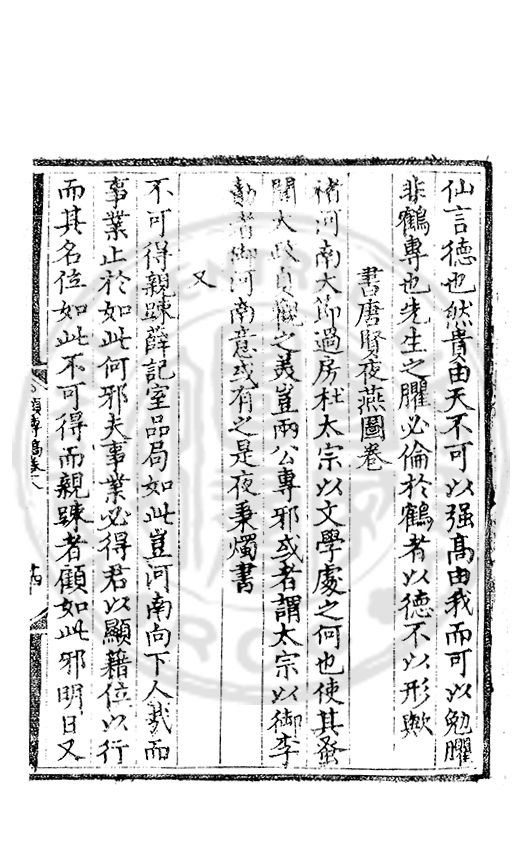 仙言德也然貴由天不可以强高由我而可以勉臞
非鶴專也先生之臞必倫於鶴者以德不以形歟
書唐賢夜燕圖卷
褚河南大節過房杜太宗以文學處之何也使其蚤
關大政貞觀之美豈兩公專邪或者謂太宗以御李
勣者御河南意或有之是夜秉燭書
又
不可得親踈薛記室品局如此豈河南向下人哉而
事業止於如此何邪夫事業必得君以顯藉位以行
而其名位如此不可得而親踈者顧如此邪明日又